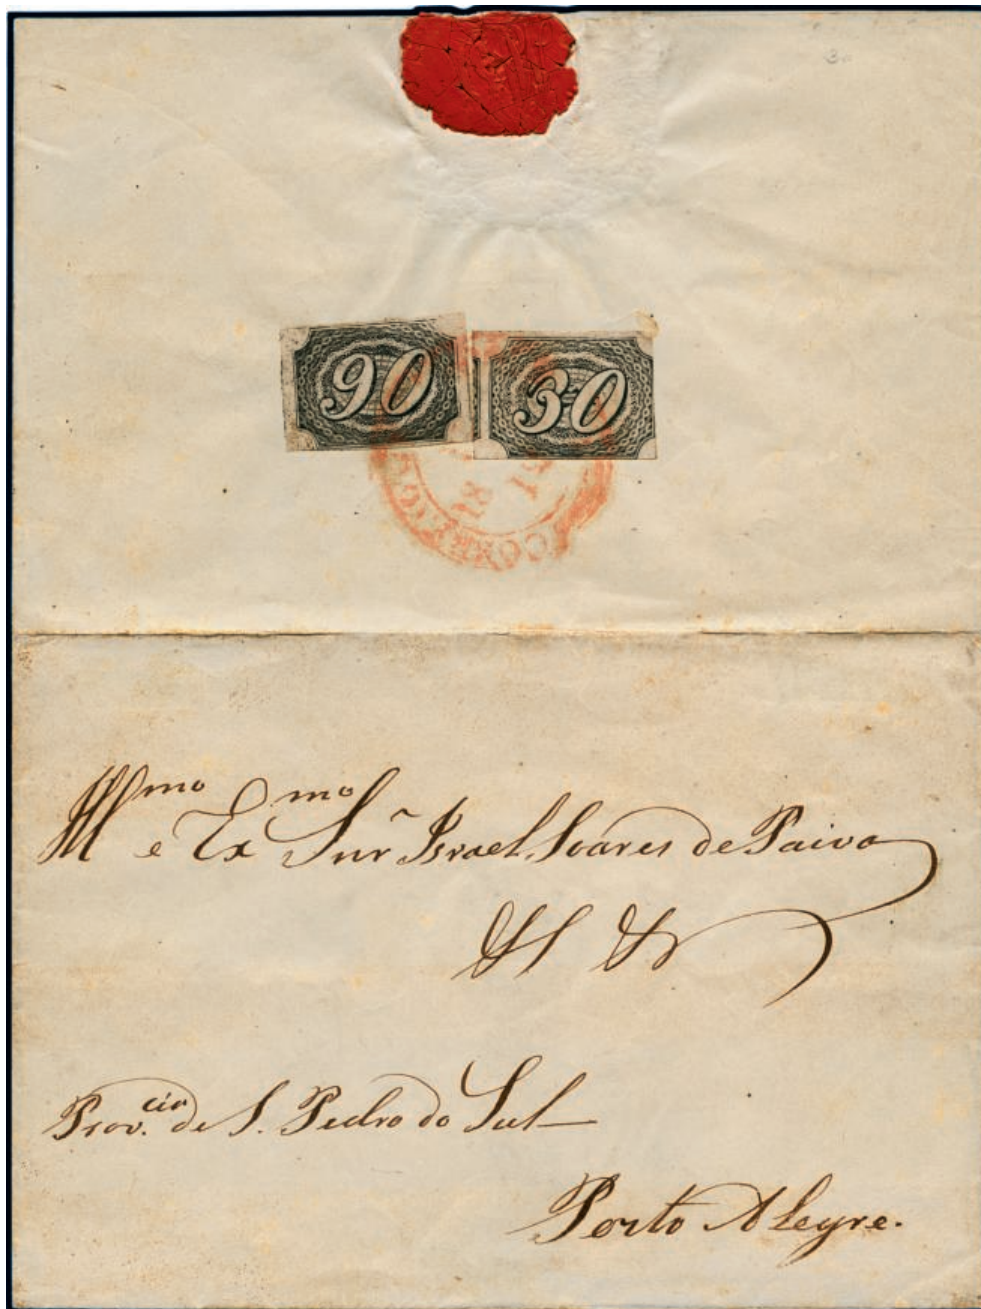 90 30
Ill^mo e Ex^mo Snr Israel Soares de Paiva
Prov.^cia de S. Pedro do Sul
Porto Alegre.